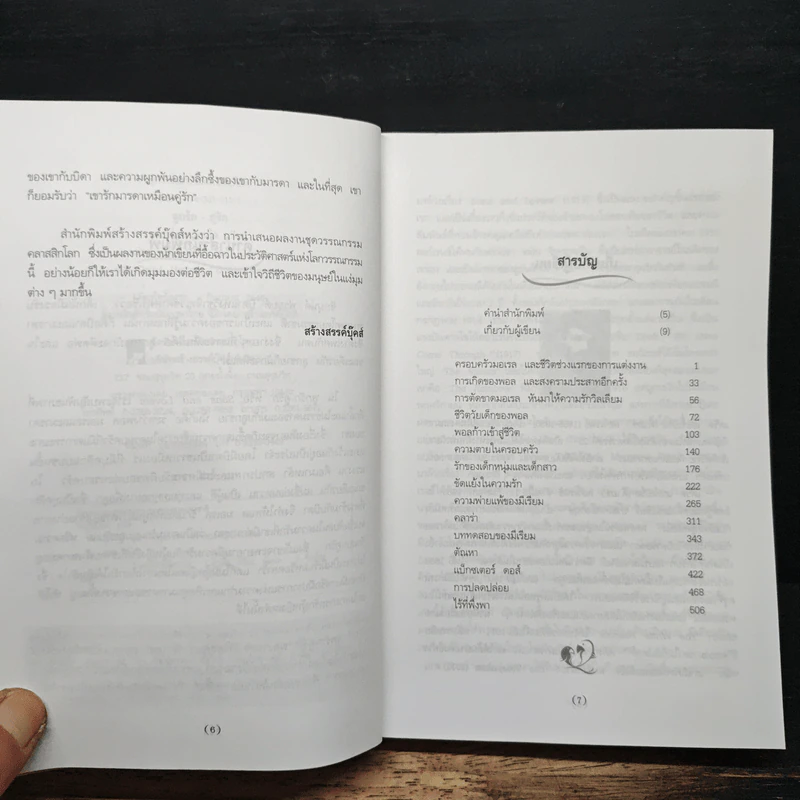 ของเขากับบิดา และความผูกพันอย่างลึกซึ้งของเขากับมารดา และในที่สุด เขา
ก็ยอมรับว่า "เขารักมารดาเหมือนคู่รัก"
สำนักพิมพ์สร้างสรรค์บุ๊คส์หวังว่า การนำเสนอผลงานชุดวรรณกรรม
คลาสสิกโลก ซึ่งเป็นผลงานของนักเขียนที่อื้อฉาวในประวัติศาสตร์แห่งโลกวรรณกรรม
นี้ อย่างน้อยก็ให้เราได้เกิดมุมมองต่อชีวิต และเข้าใจวิถีชีวิตของมนุษย์ในแง่มุม
ต่าง ๆ มากขึ้น
สร้างสรรค์บุ๊คส์
(6)
สารบัญ
คำนำสำนักพิมพ์ (5)
เกี่ยวกับผู้เขียน (9)
ครอบครัวมอเรล และชีวิตช่วงแรกของการแต่งงาน 1
การเกิดของพอล และสงครามประสาทอีกครั้ง 33
การตัดขาดมอเรล หันมาให้ความรักวิลเลียม 56
ชีวิตวัยเด็กของพอล 72
พอลก้าวเข้าสู่ชีวิต 103
ความตายในครอบครัว 140
รักของเด็กหนุ่มและเด็กสาว 176
ขัดแย้งในความรัก 222
ความพ่ายแพ้ของมีเรียม 265
คลาร่า 311
บททดสอบของมีเรียม 343
ตัณหา 372
แบ็กซเตอร์ ดอส์ 422
การปลดปล่อย 468
ไร้ที่พึ่งพา 506
(7)